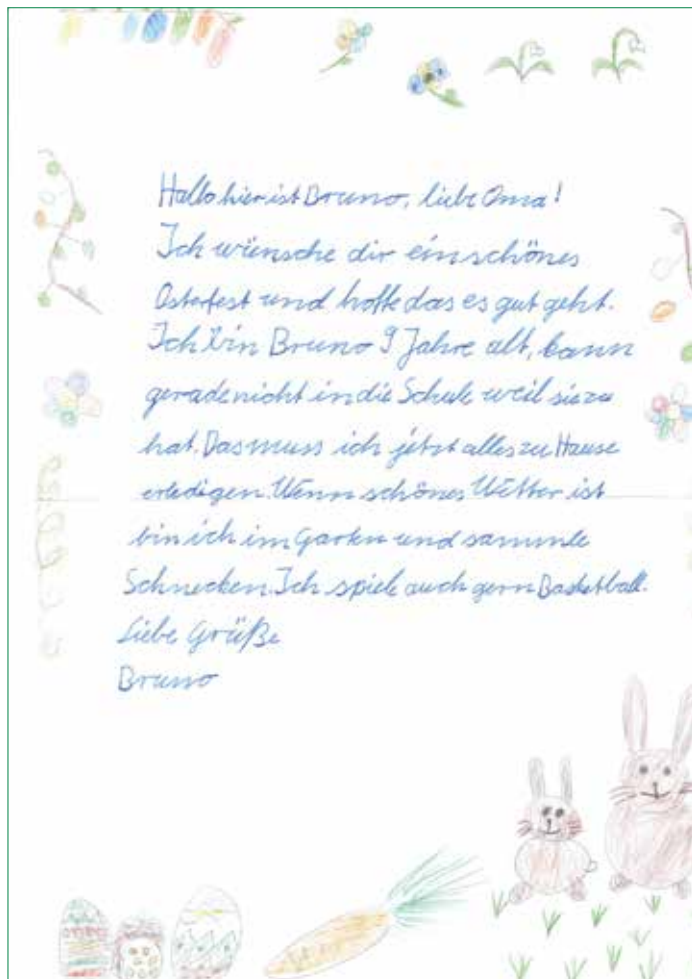 Hallo hier ist Bruno, liebe Oma!
Ich wünsche dir ein schönes
Osterfest und hoffe das es gut geht.
Ich bin Bruno 9 Jahre alt, kann
gerade nicht in die Schule weil sie zu
hat. Das muss ich jetzt alles zu Hause
erledigen. Wenn schönes Wetter ist
bin ich im Garten und sammle
Schnecken. Ich spiele auch gern Basketball.
Liebe Grüße
Bruno